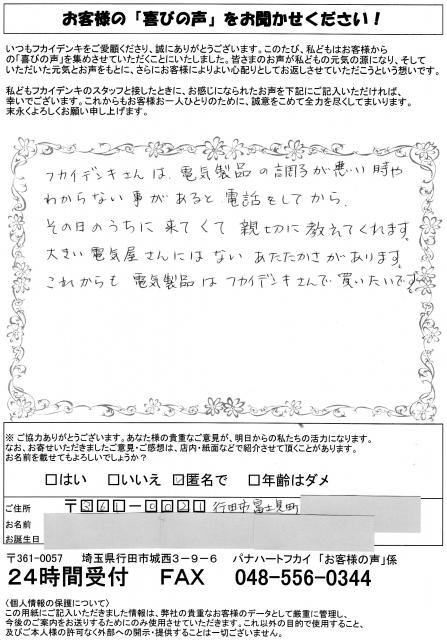 お客様の「喜びの声」をお聞かせください！
いつもフカイデンキをご愛顧くださり、誠にありがとうございます。このたび、私どもはお客様から
の「喜びの声」を集めさせていただくことにいたしました。皆さまのお声が私どもの元気の源になり、そして
いただいた元気とお声をもとに、さらにお客様によりよい心配りとしてお返しさせていただこうという想いです。
私どもフカイデンキのスタッフと接したときに、お感じになられたお声を下記にご記入いただければ、
幸いでございます。これからもお客様お一人ひとりのために、誠意をこめて全力を尽くしてまいります。
末永くよろしくお願い申し上げます。
フカイデンキさんは、電気製品の調子が悪い時や
わからない事があると、電話をしてから、
その日のうちに来てくて親切に教えてくれます。
大きい電気屋さんにはないあたたかさがあります。
これからも電気製品はフカイデンキさんで買いたいです。
※ ご協力ありがとうございます。あなた様の貴重なご意見が、明日からの私たちの活力になります。
なお、お寄せいただきましたご意見・ご感想は、店内・紙面などで紹介させて頂くことがあります。
お名前を載せてもよろしいでしょうか？
□はい □いいえ ☑匿名で □年齢はダメ
ご住所 〒361-0021 行田市富士見町
お名前
お誕生日
〒361-0057 埼玉県行田市城西3-9-6 パナハートフカイ 「お客様の声」係
24時間受付 FAX 048-556-0344
〈個人情報の保護について〉
この用紙にご記入いただきました情報は、弊社の貴重なお客様のデータとして厳重に管理し、
今後のご案内をお送りするためにのみ使用させていただきます。これ以外の目的で使用すること、
及びご本人様の許可なく外部への開示・提供することは一切ございません。